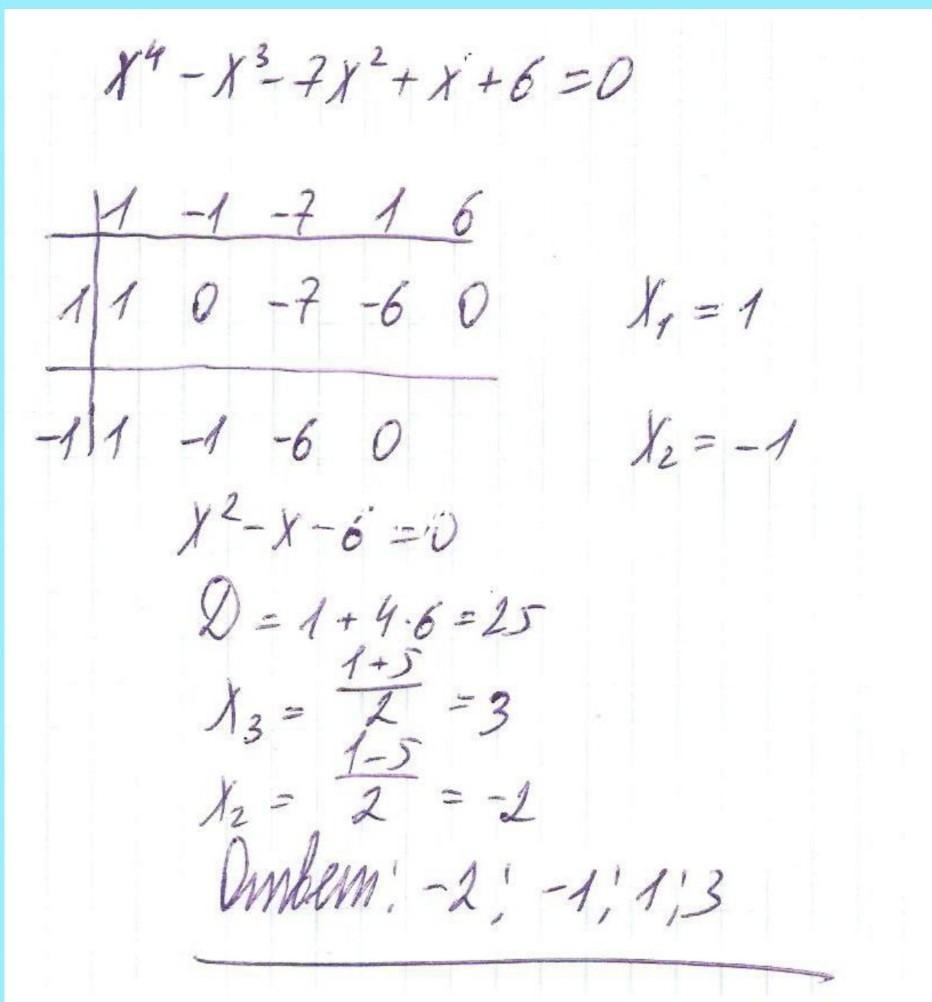 x⁴ - x³ - 7x² + x + 6 = 0
1 -1 -7 1 6
1 1 0 -7 -6 0 x₁ = 1
-1 1 -1 -6 0 x₂ = -1
x² - x - 6 = 0
D = 1 + 4·6 = 25
x₃ = (1+5)/2 = 3
x₂ = (1-5)/2 = -2
Ответ: -2; -1; 1; 3